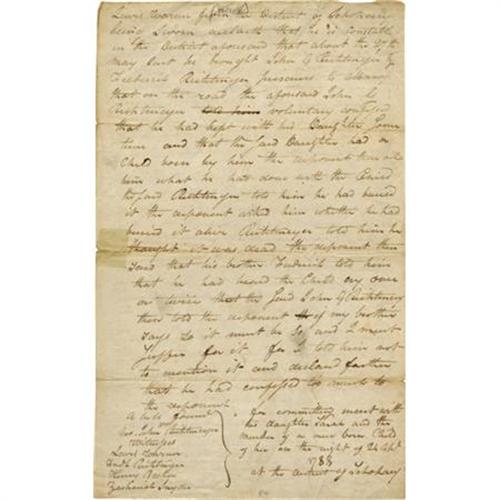 Lewis from the District of Schohary
being Sworn that he is Constable
in the District aforesaid that about the 27th
may last he brought John G Ricktmeyer &
Frederick Ricktmeyer prisoners to Albany
that on the road the aforesaid John G
Ricktmeyer told him voluntary confessed
that he had kept with his Daughter Some
time and that the said Daughter had a
Child born by him the deponent then
him what he had done with the Child
the said Ricktmeyer told him he had buried
it the deponent asked him whether he had
buried it alive Ricktmeyer told him he
thought it was dead the deponent then
said that his brother Frederick told him
that he had heard the Child cry once
or twice that the said John G Ricktmeyer
then told the deponent if my brother
says so it must be so and I must
suffer for it for I told him not
to mention it and declared farther
that he had confessed too much to
the deponent
A bill found
John Ricktmeyer
Witnesses
Lewis
Fredk Ricktmeyer
Henry
Zachariah Snyder
for committing incest with
his daughter Sarah and the
murder of a new born Child
of her on the night of 24 Sept
1788
at the district of Schohary